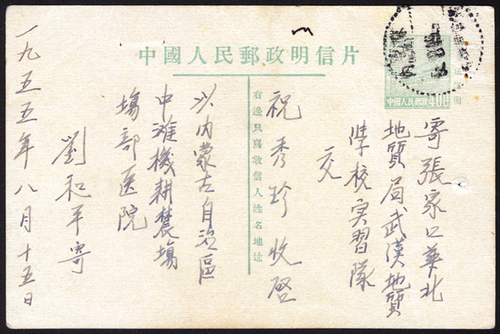 中國人民郵政明信片
中國人民郵政
400
右邊只寫收信人姓名地址
寄張家口華北
地質局武漢地質
學校实習隊
交
祝秀珍收啓
以內蒙古自治區
中灘機耕農場
場部医院
劉和平寄
一九五五年八月十五日